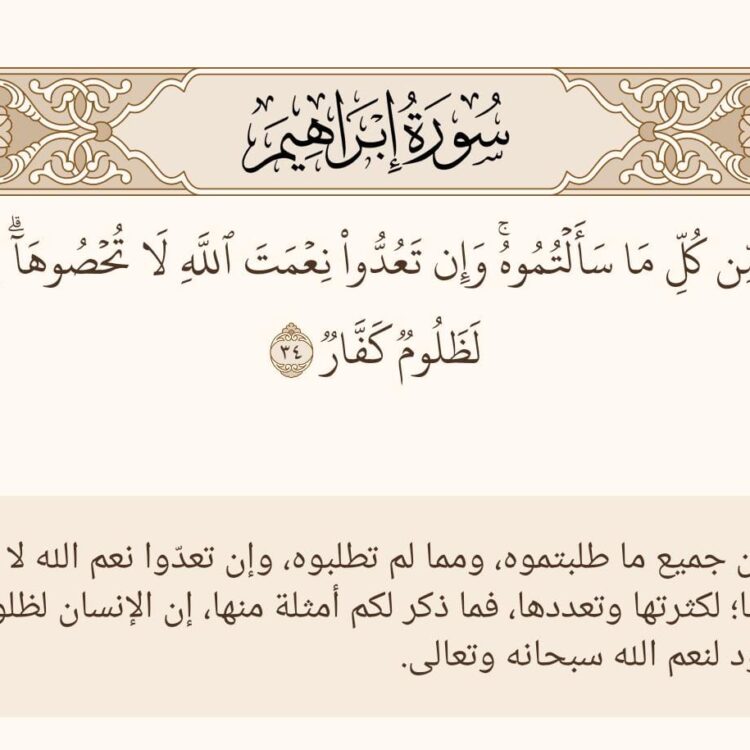 سُورَةُ إِبْرَاهِيمَ
مِّن كُلِّ مَا سَأَلْتُمُوهُۚ وَإِن تَعُدُّوا۟ نِعْمَتَ ٱللَّهِ لَا تُحْصُوهَآۗ
لَظَلُومٌ كَفَّارٌ ٣٤
جميع ما طلبتموه، ومما لم تطلبوه، وإن تعدّوا نعم الله لا
لكثرتها وتعددها، فما ذكر لكم أمثلة منها، إن الإنسان لظلو
لنعم الله سبحانه وتعالى.